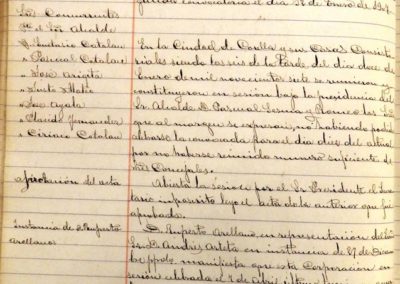 Sres Concurrentes
Sr Alcalde
convocatoria el dia 12 de Enero de 1907
D. Eustasio Catalan
" Pascual Catalan
" Jose
" Justo
" Jose Ayala
" Placido Fernandez
" Ciriaco Catalan
En la Ciudad de Corella y sus Casas Consisto
riales siendo las seis de la tarde del dia doce de
Enero de mil novecientos siete se reunieron y
constituyeron en sesión bajo la presidencia del
Sr. Alcalde D. Pascual los Sres
que al margen se expresan, no habiendo podido
celebrarse la convocada para el dia diez del actual
por no haberse reunido numero suficiente de
Sres Concejales.
Aprobación del acta
Abierta la sesion por el Sr. Presidente el Secre
tario leyó el acta de la anterior que fue
aprobada.
Instancia de D. Ruperto
Arellano
D. Ruperto Arellano, en representacion del
Sr. D. Andres Arteta en instancia de 27 de Diciem
bre ppdo. manifiesta que esta Corporacion en
sesión celebrada el 7 de Abril ultimo